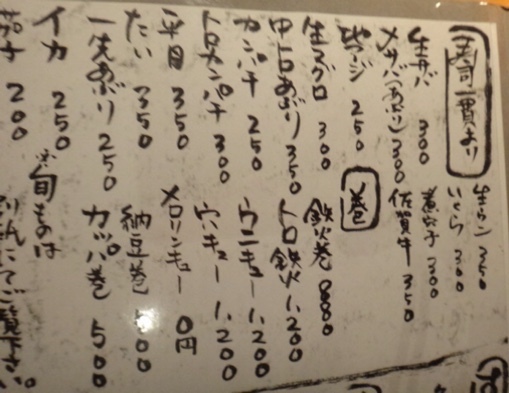 寿司一貫より
生サバ 300
メサバ(あぶり) 300
地アジ 250
生マグロ 300
中トロあぶり 350
カンパチ 250
トロカンパチ 300
平目 350
たい 350
一夫あぶり 250
イカ 250
茄子 200
生ウニ 350
いくら 300
300
佐賀牛 350
巻
鉄火巻 800
トロ鉄火 1,200
ウニキュー 1,200
穴キュー 1,200
メロリンキュー 0円
納豆巻 500
カッパ巻 500
※旬ものは
別紙にてご覧下さい。